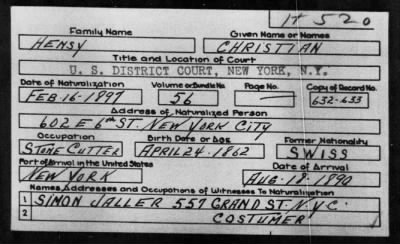 H 520
Family Name Given Name or Names
HENSY CHRISTIAN
Title and Location of Court
U. S. DISTRICT COURT, NEW YORK, N.Y.
Date of Naturalization Volume or Bundle No. Page No. Copy of Record No.
FEB 16-1897 56 — 632-633
Address of Naturalized Person
602 E 6TH ST. NEW YORK CITY
Occupation Birth Date or Age Former Nationality
STONE CUTTER APRIL 24. 1862 SWISS
Port of Arrival in the United States Date of Arrival
NEW YORK AUG. 18. 1890
Names, Addresses and Occupations of Witnesses To Naturalization
1 SIMON JALLER 557 GRAND ST. N.Y.C.
2 COSTUMER